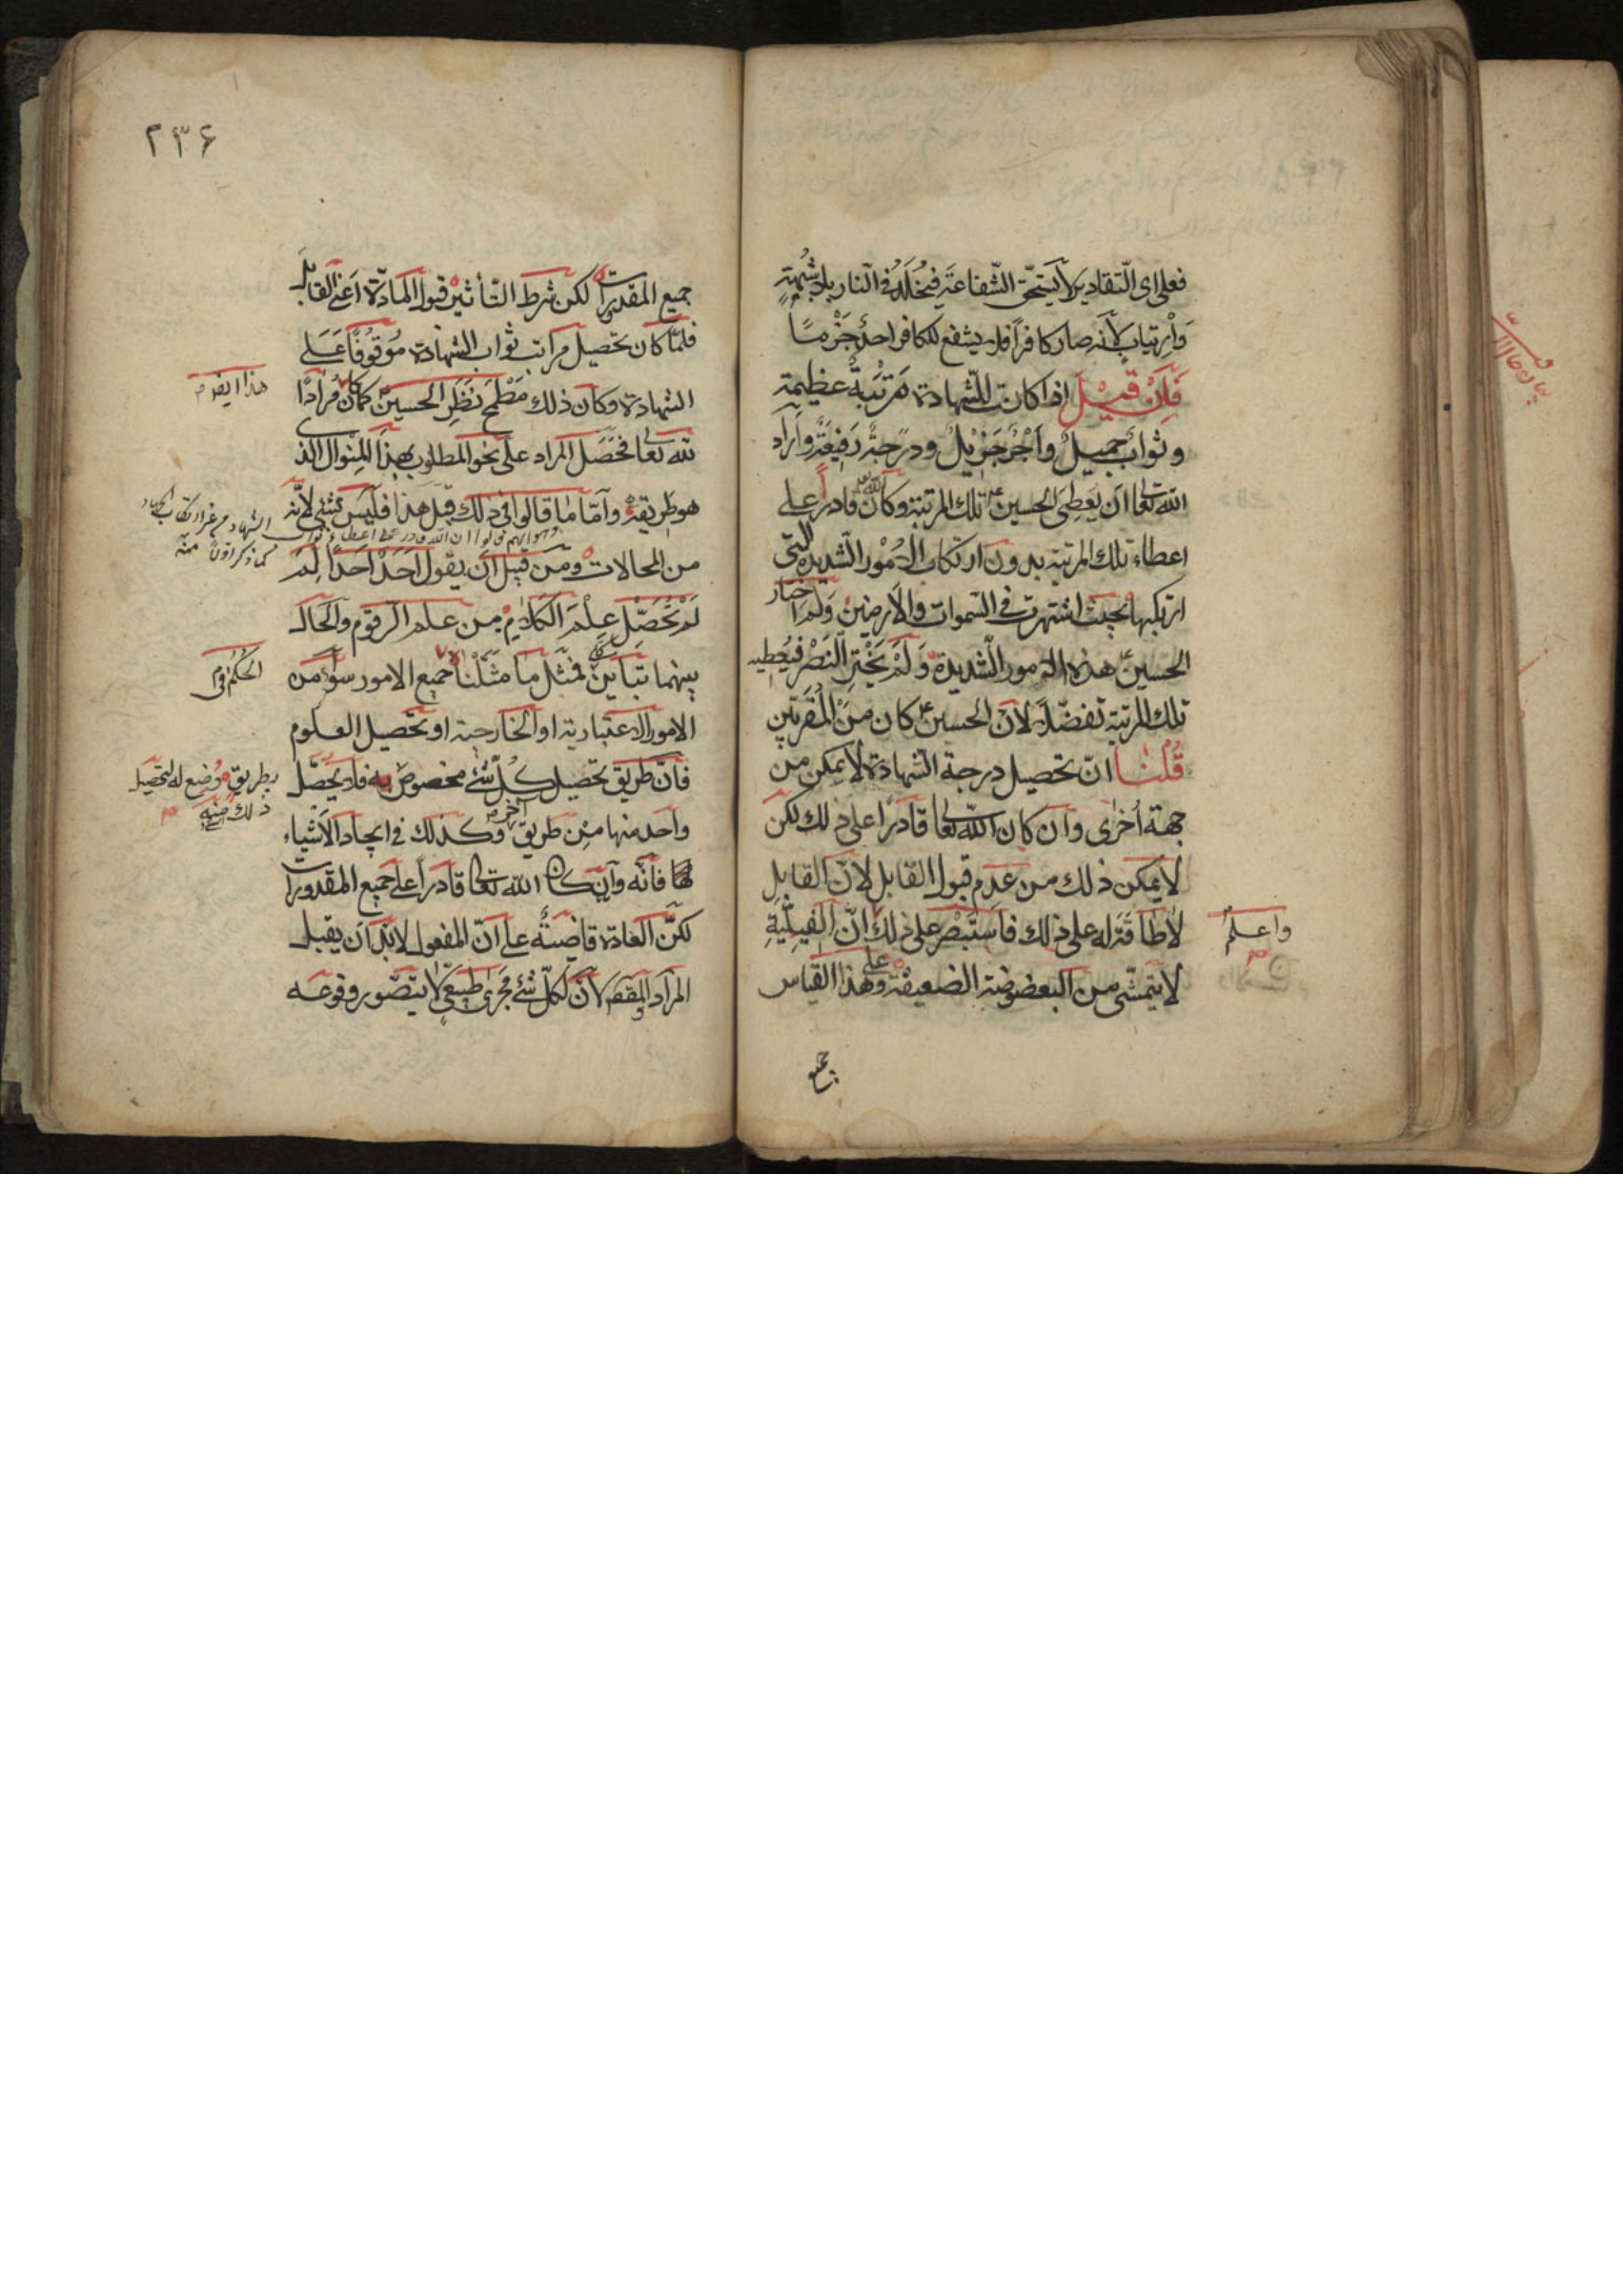 فعلى اى التقادير لا يستحق الشفاعة فيخلد فى النار بلا شبهة
وارتياب لانه صار كافرا فلا يشفع للكافر احد جزما
فان قيل اذا كانت للشهادة مرتبة عظيمة
وثواب جميل واجر جزيل ودرجة رفيعة واراد
الله تعا ان يعطى الحسين تلك المرتبة وكان الله قادرا على
اعطاء تلك المرتبة بدون ارتكاب الامور الشديدة التى
ارتكبها بحيث اشتهرت فى السموات والارضين ولم اختار
الحسين هذه الامور الشديدة ولم يختر النصر فيعطيه
تلك المرتبة تفضلا لان الحسين كان من المقربين
قلنا ان تحصيل درجة الشهادة لا يمكن من
جهة اخرى وان كان الله تعا قادرا على ذلك لكن
لا يمكن ذلك من عدم قبول القابل لان القابل
لا طاقة له على ذلك فاستبصر على ذلك ان الفيلية
واعلم
لا يتمشى من البعوضة الضعيفة وعلى هذا القياس
جميع
٢٣۶
جميع المقدرات لكن شرط التأثير قبول المادة اعنى القابل
فلما كان تحصيل مراتب ثواب الشهادة موقوفا على
الشهادة وكان ذلك مطمح نظر الحسين كما كان مرادا
هذا
لله تعا فحصل المراد على نحو المطلوب بهذا المنوال الذى
هو طريقة واما ما قالوا فى ذلك قبل هذا فليس بشئ لانه
من المحالات ومن قبيل ان يقول احد احدا لم
كما ذكر منه
لم تحصل علم الكلام من علم الرقوم والحال
بينهما تباين كلى فمثل ما مثلنا جميع الامور سواء من
الحكم فى
الامور الاعتبارية او الخارجية او تحصيل العلوم
فان طريق تحصيل كل شئ مخصوص به فلا يحصل
بطريق وضع له لتحصيل
ذلك منه
واحد منها من طريق اخر وكذلك فى ايجاد الاشياء
فانه وان كان الله تعا قادرا على جميع المقدورات
لكن العادة قاضية على ان المفعول لا بد ان يقبل
المراد لان لكل شئ مجرى طبيعى لا يتصور وقوعه